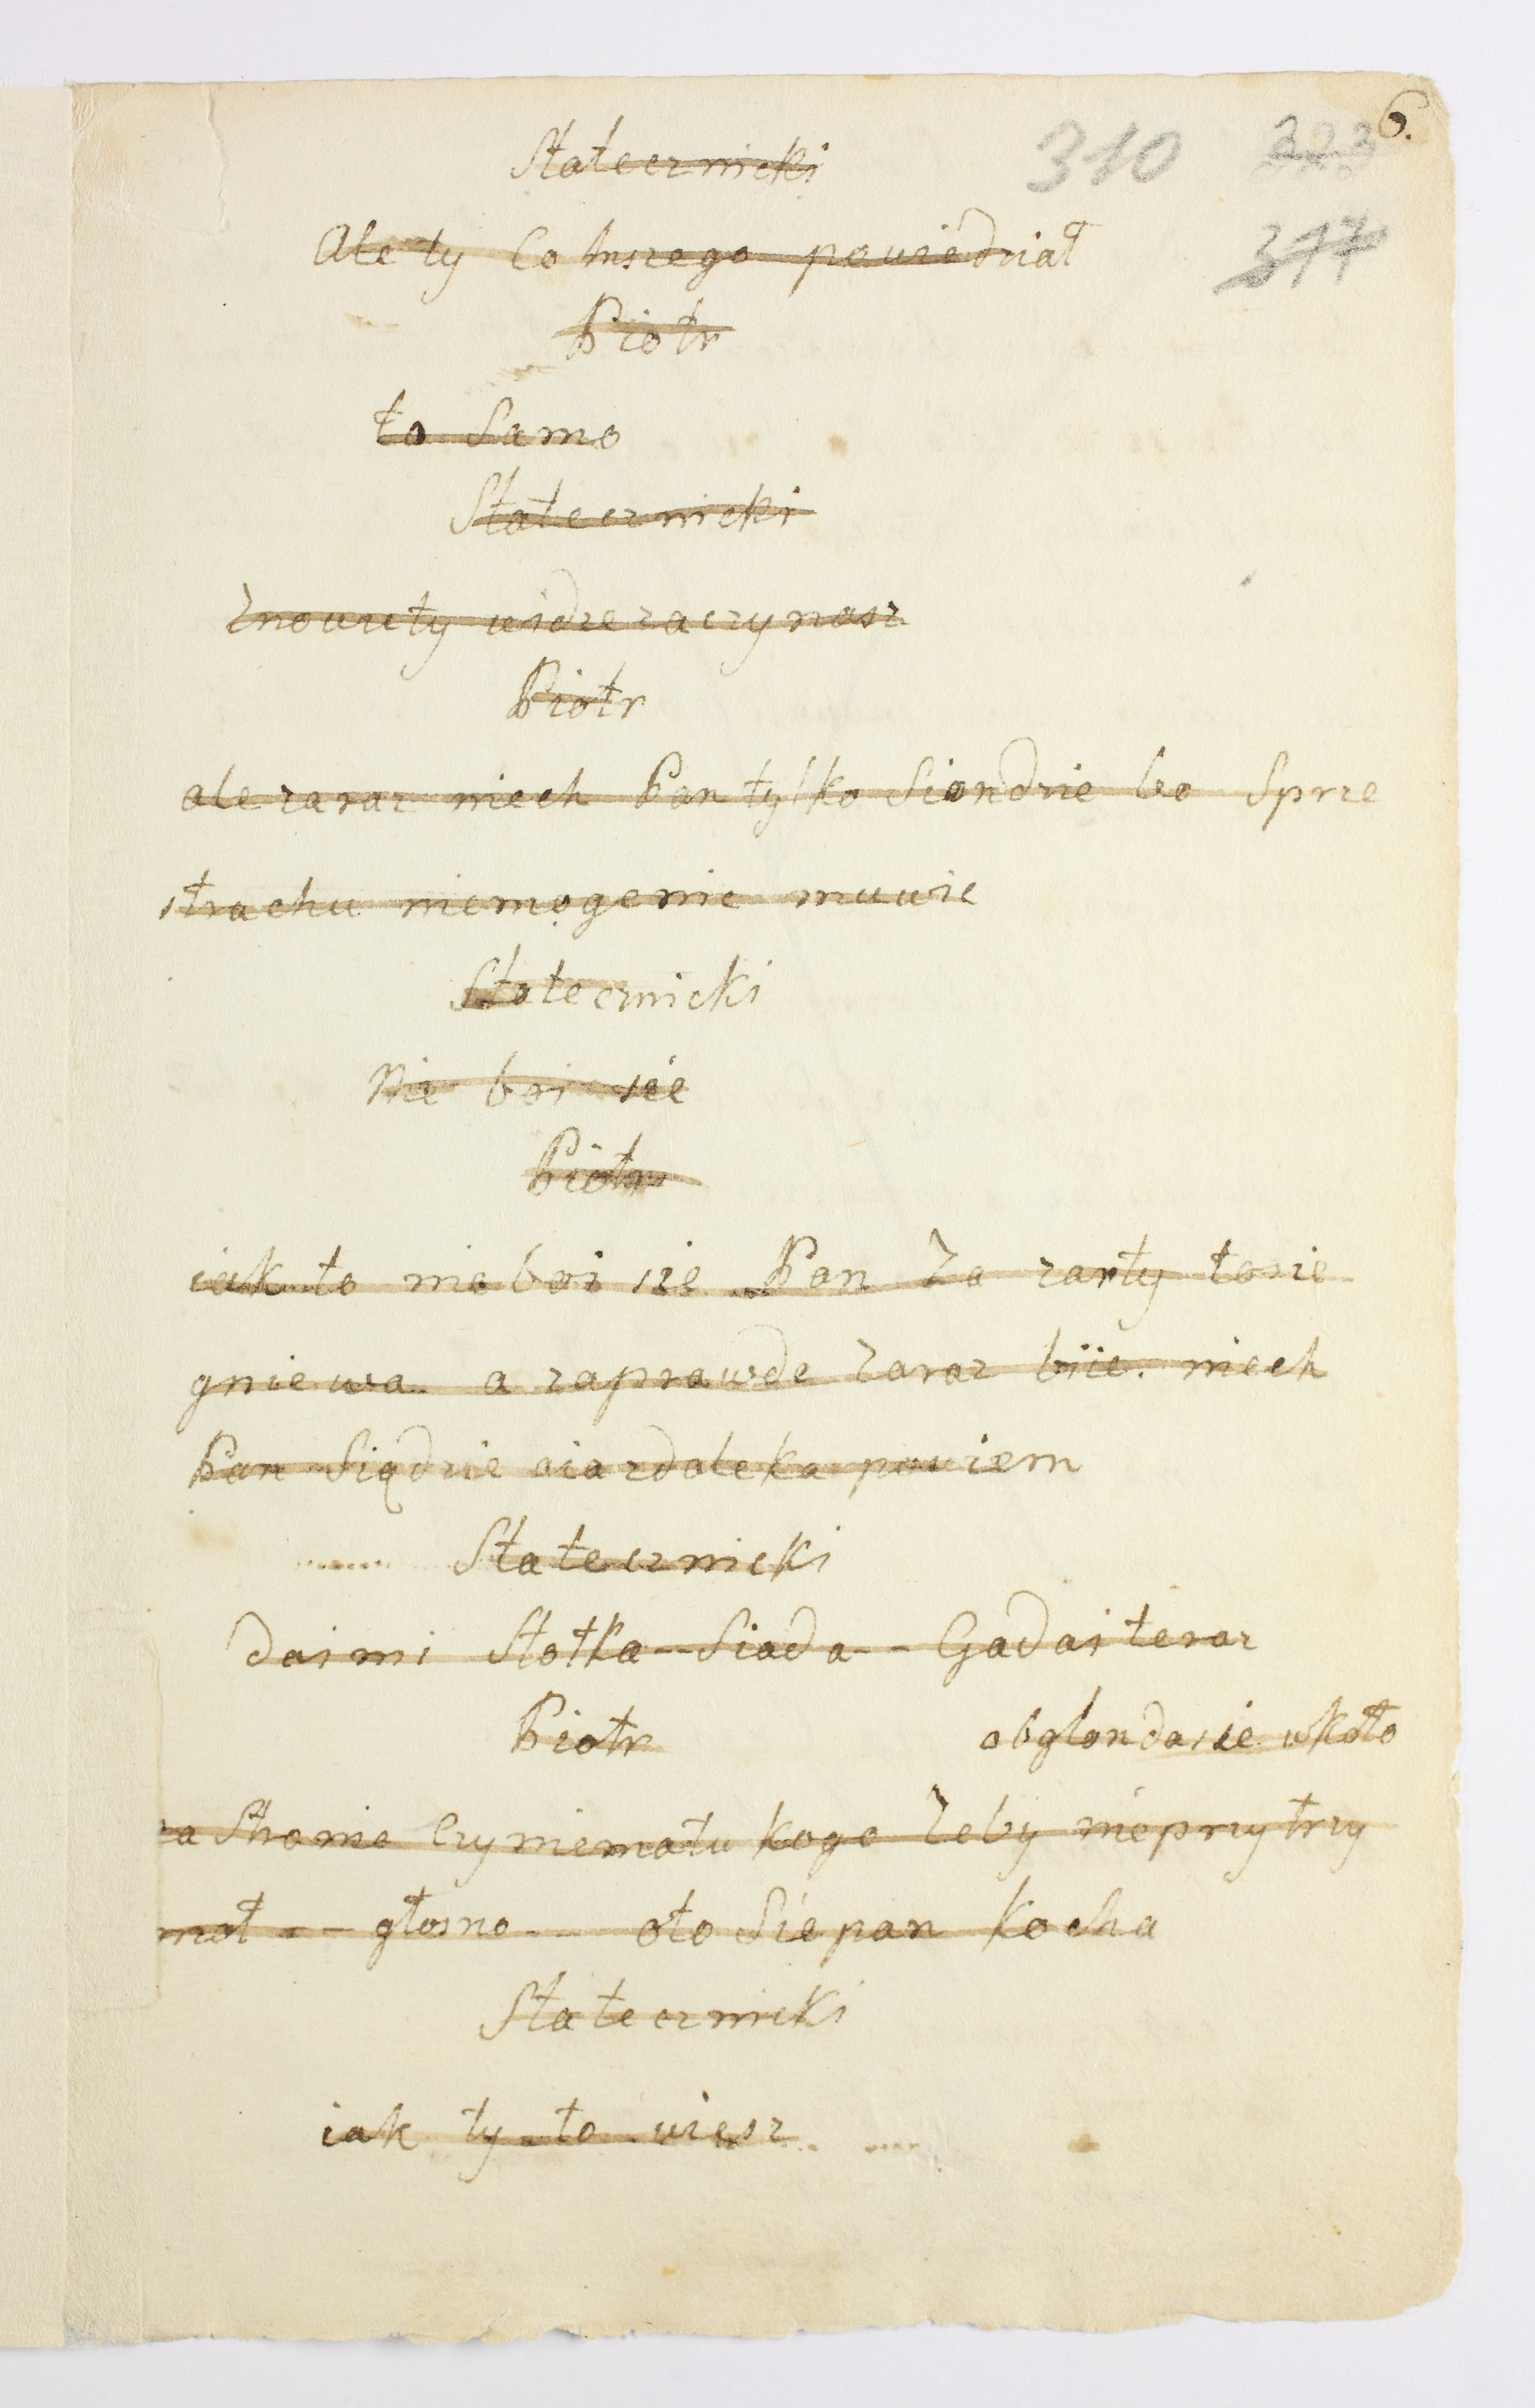 6.
310 323
317
Statecznicki
Ale ty Co Inszego powiedział
Piotr
to Samo
Statecznicki
Znowu ty widze zaczynasz
Piotr
ale zaraz niech Pan tylko Siendzie bo Sprze
strachu niemogenic muwic
Statecznicki
Nie boi sie
Piotr
iak to nieboi sie Pan Za zarty tosie
gniewa a zaprawde Zaraz biie. niech
Pan Siądzie aiazdaleka powiem
Statecznicki
daimi Stołka -- Siada -- Gadai teraz
Piotr obglondasie wkoło
na Stronie Czyniematu kogo Zeby nieprzytrzy
mał -- głosno -- oto Sie pan kocha
Statecznicki
iak ty to wiesz